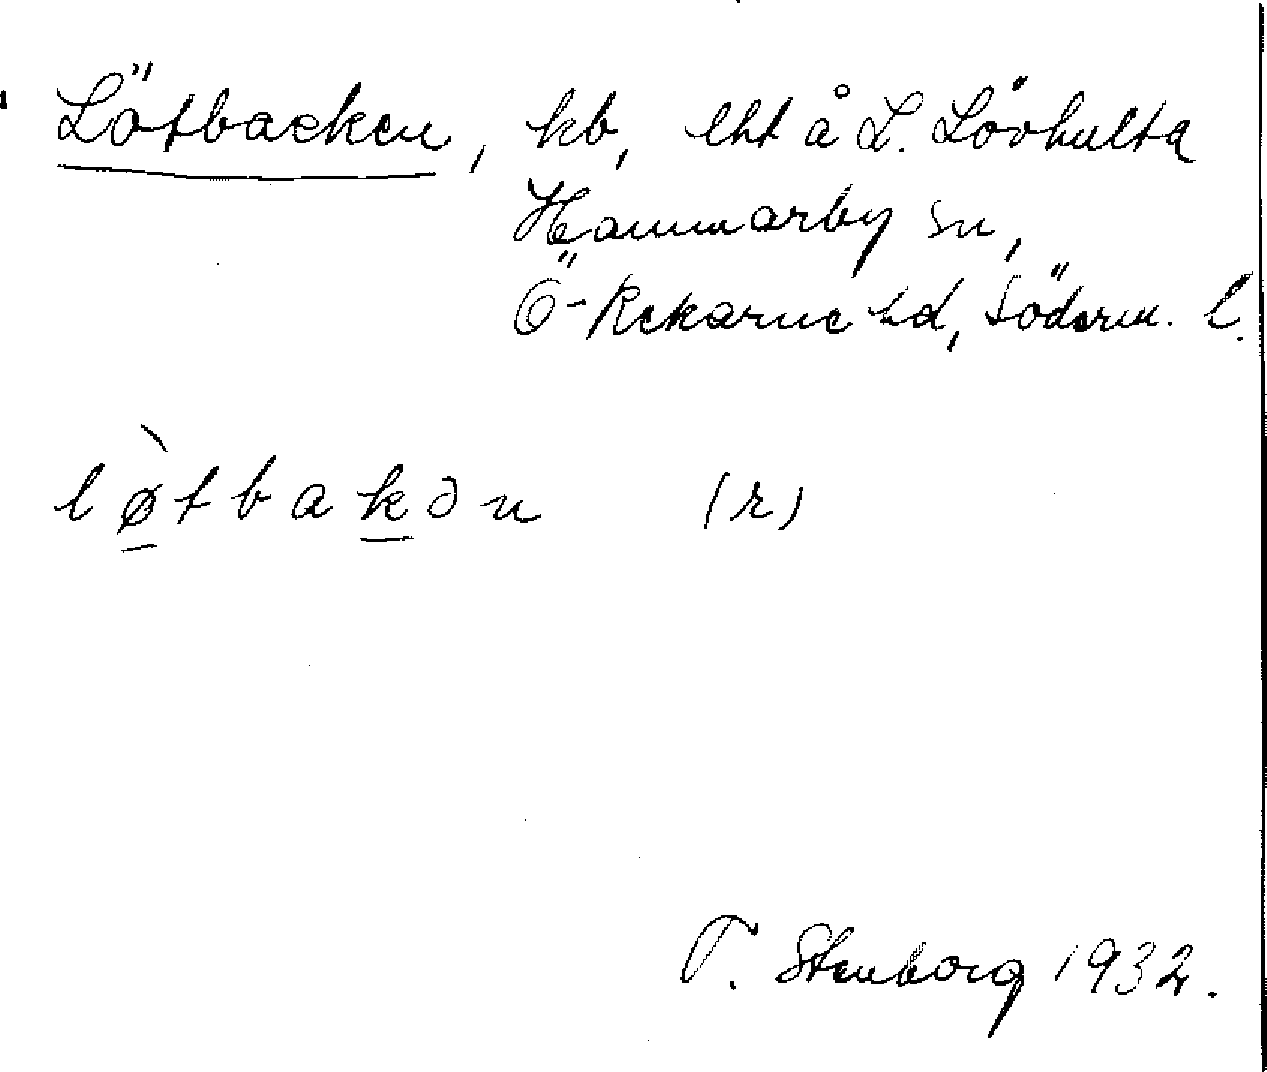 Lötbacken, kb, lht å L. Lövhulta
Hammarby sn,
Ö-Rekarne hd, Söderm. l.
lø̀tbakən (r)
T. Stenborg 1932.